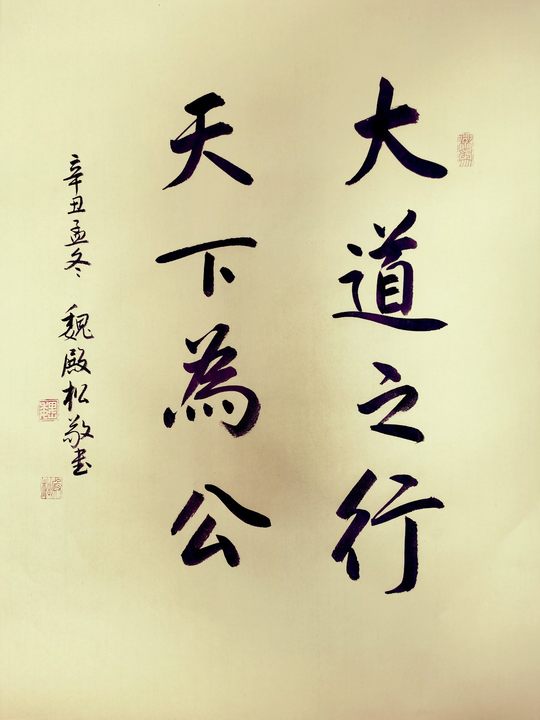 大道之行
天下為公
辛丑孟冬 魏殿松敬书